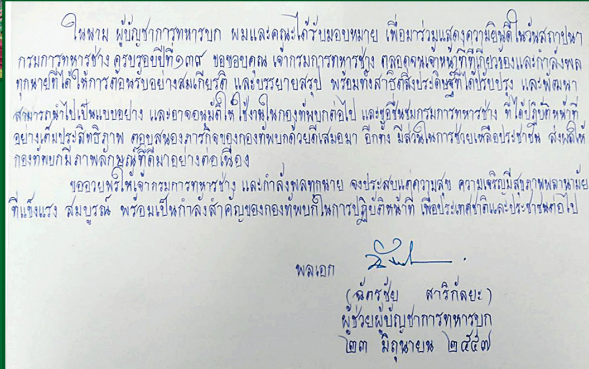 ในนาม ผู้บัญชาการทหารบก ผมและคณะได้รับมอบหมาย เพื่อมาร่วมแสดงความยินดีในวันสถาปนา
กรมการทหารช่าง ครบรอบปีที่ ๑๓๙ ขอขอบคุณ เจ้ากรมการทหารช่าง ตลอดจนเจ้าหน้าที่ที่เกี่ยวข้องและกำลังพล
ทุกนายที่ได้ให้การต้อนรับอย่างสมเกียรติ และบรรยายสรุป พร้อมทั้งสาธิตสิ่งประดิษฐ์ที่ได้ปรับปรุง และพัฒนา
สามารถนำไปเป็นแบบอย่าง และอาจอนุมัติให้ใช้งานในกองทัพบกต่อไป และขอชื่นชมกรมการทหารช่าง ที่ได้ปฏิบัติหน้าที่
อย่างเต็มประสิทธิภาพ ตอบสนองภารกิจของกองทัพบกด้วยดีเสมอมา อีกทั้ง มีส่วนในการช่วยเหลือประชาชน ส่งผลให้
กองทัพบกมีภาพลักษณ์ที่ดีมาอย่างต่อเนื่อง
ขออวยพรให้เจ้ากรมการทหารช่าง และกำลังพลทุกนาย จงประสบแต่ความสุข ความเจริญมีสุขภาพพลานามัย
ที่แข็งแรง สมบูรณ์ พร้อมเป็นกำลังสำคัญของกองทัพบกในการปฏิบัติหน้าที่ เพื่อประเทศชาติและประชาชนต่อไป
พลเอก
(ฉัตรชัย สาริกัลยะ)
ผู้ช่วยผู้บัญชาการทหารบก
๒๓ มิถุนายน ๒๕๕๗